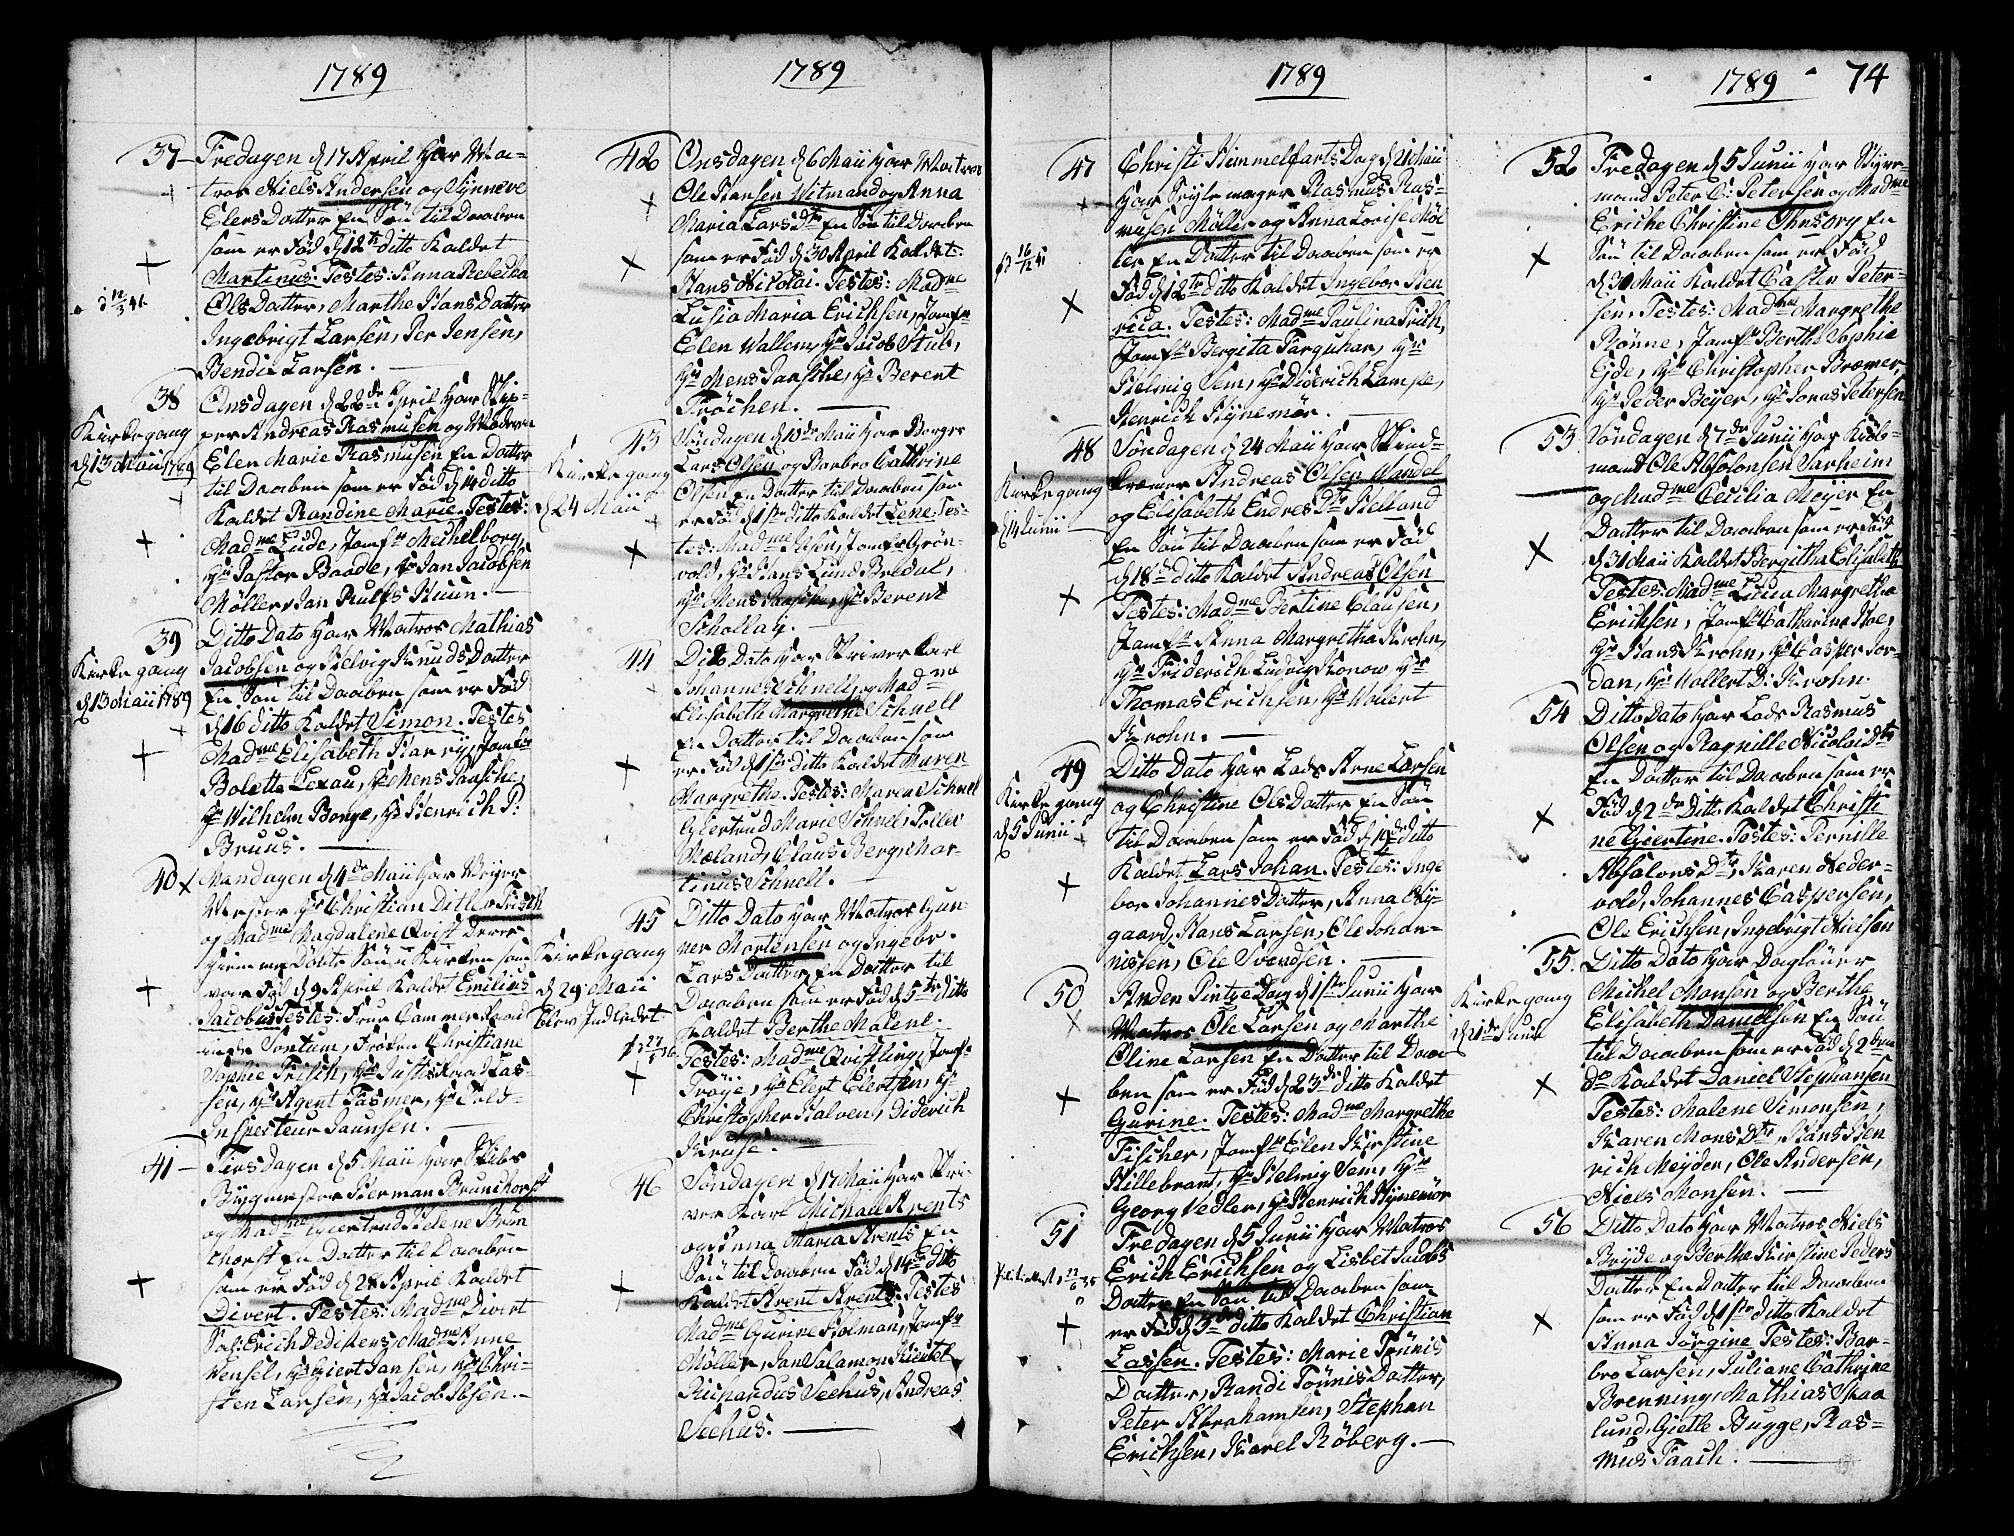 1789
37 Fredagen d 17 April har Ma=
tros Niels Andersen og Synneve
Elers Datter En Søn til Daaben
som er Fød d 12te ditto Kaldet
Martinus: Testes: Anna Rebecha
Ols Datter, Marthe Hans Datter
Ingebrigt Larsen, Per Jensen,
Bendix Larsen.
38 Onsdagen d 22de April har Skip=
per Andreas Rasmusen og Moderen
Elen Marie Rasmusen En Datter
til Daaben som er Fød d 14 ditto
Kaldet Randine Marie. Testes:
Madme Lude, Jomfr Mechelborg,
Hr Pastor Baade, Hr Jan Jacobsen
Møller, Jan Roulfs Kuun.
Kirkegang
d 13 Maii 1789
39 Ditto Dato har Matros Mathias
Jacobsen og Helvig Knuds Datter
En Søn til Daaben som er Fød
d 16 ditto Kaldet Simon. Testes
Madme Elisabeth Harry, Jomfr
Bolette Lexau, Hr Mens Jansche,
Hr Wilhelm Bonge, Hr Henrich P:
Bruus.
Kirkegang
d 13 Maii 1789
40 Mandagen d 4de Maii har Veyer
Mester Hr Christian Ditlev Frisch
og Madme Magdalene Qvist Deres
hiemme Døbte Søn i Kirken som
var Fød d 9 April Kaldet Emilius
Jacobus Testes: Frue Cammerraad
inde Fontum, Frøken Christiane
Sophie Frisch, Hr Justitsraad Fas=
sen, Hr Agent Fasmer, Hr Told=
Inspecteur Jaunsen.
41 Tirsdagen d 5 Maii har Skibs
Bygmester Herman Brunchorst
og Madme Giertrud Helene Brun
chorst En Datter til Daaben
som er Fød d 28 April Kaldet
Divert. Testes: Madme Divert
Sal: Erich Dedikens, Madme Anne
Wensel, Hr Giert Jansen, Hr Chri=
sten Larsen, Hr Jacob Ibsen.
1789
42 Onsdagen d 6 Maii har Matros
Ole Hansen Witmand og Anna
Maria Lars Dtr En Søn til Daaben
som er Fød d 30 April Kaldet:
Hans Nicolai. Testes: Madme
Lusia Maria Erichsen, Jomfr
Elen Wallem, Hr Jacob Stub,
Hr Mens Jansche, Hr Berent
Trøchen.
43 Søndagen d 10de Maii har Borger
Lars Olsen og Barbro Cathrine
Olsen En Datter til Daaben som
er Fød d 1ste ditto Kaldet Lene. Tes=
tes: Madme Ibsen, Jomfr Grøn=
vold, Hr Hans Lund Bredal,
Hr Mens Jansche, Hr Berent
Schollay.
Kirkegang
d 24 Maii
44 Dito Dato har Skriver Karl
Johannes Schnell og Madme
Elisabeth Margrethe Schnell
En Datter til Daaben som
er Fød d 1ste ditto Kaldet Maren
Margrethe. Testes: Maren Schnel
Giertrud Marie Schnel, Toller
Mæland, Claus Berg, Mar=
tinus Schnell.
45 Ditto Dato har Matros Gun=
ner Mortensen og Ingebr.
Lars Datter En Datter til
Daaben som er Fød d 5te ditto
Kaldet Berthe Malene.
Testes: Madme Qvistling, Jomfr
Frøye, Hr Elert Elertsen, Hr
Christopher Halven, Diderich
Kruse.
Kirkegang
d 29 Maii
blev Indledet
46 Søndagen d 17 Maii har Skri=
ver Karl Michael Arents
og Anna Maria Arents En
Søn til Daaben Fød d 14de ditto
Kaldet Arent Arents. Testes
Madme Gurine Holman, Jomfr
Møller, Jan Salamon Kientel
Richardus Seehus, Andreas
Seehus.
1789
47 Christi Himmelfarts Dag d 21 Maii
har Seylemager Rasmus Ras=
musen Møller og Anna Lovise Møl
ler En Datter til Daaben som er
Fød d 12te ditto Kaldet Ingebor Hen
rica. Testes: Madme Paulina Frith,
Jomfr Bergita Farquhar, Hr
Helmig Sem, Hr Diderich Lampe,
Henrich Hynemør.
48 Søndagen d 24 Maii har Skind=
kræmer Andreas Olsen Wandal
og Elisabeth Endres Dtr Helland
En Søn til Daaben som er Fød
d 18de ditto Kaldet Andreas Olsen
Testes: Madme Bertine Clausen,
Jomfr Anna Margretha Krohn,
Hr Friderich Ludvig Konow, Hr
Thomas Erichsen, Hr Wollert
Krohn.
Kirkegang
d 14 Junii
49 Ditto Dato har Lods Arne Larsen
og Christine Ols Datter En Søn
til Daaben som er Fød d 19de ditto
Kaldet Lars Johan. Testes: Inge
bor Johannes Datter, Anna Ny=
gaard, Hans Larsen, Ole Johan=
nissen, Ole Svendsen.
Kirkegang
d 5 Junii
50 Anden Pintze Dag d 1ste Junii har
Matros Ole Larsen og Marthe
Oline Larsen En Datter til Daa
ben som er Fød d 23de ditto Kaldet
Gurine. Testes: Madme Margrethe
Fischer, Jomfr Elen Kirstine
Hillebrant, Hr Helmig Sem, Hr
Georg Vedler, Hr Henrich Hynemør
51 Fredagen d 5 Junii har Matros
Erich Erichsen og Lisbet Jacobs
Datter En Søn til Daaben som
er Fød d 3de ditto Kaldet Christian
Lassen. Testes: Marie Tønnis
Datter, Randi Tønnis Datter,
Peter Abrahamsen, Stephan
Erichsen, Karel Røberg.
1789 74
52 Fredagen d 5 Junii har Styr=
mand Peter C: Petersen og Madme
Eriche Christine Thesorg En
Søn til Daaben som er Fød
d 30 Maii Kaldet Casten Peter=
sen, Testes: Madme Margrethe
Rønne, Jomfr Berthe Sophie
Eide, Hr Christopher Bræmer,
Hr Peder Beyer, Hr Jonas Petersen
53 Søndagen d 7de Junii har Kiøb=
mand Ole Absolonsen Sarheim
og Madme Cecilia Meyer En
Datter til Daaben som er Fød
d 31 Maii Kaldet Bergitha Elisabeth
Testes: Madme Lucia Margretha
Erichsen, Jomfr Catharina Hoe,
Hr Hans Krohn, Hr Casper Jor=
dan, Hr Wollert D: Krohn.
54 Ditto Dato har Lods Rasmus
Olsen og Ragnille Nicolai Dtr
En Datter til Daaben som er
Fød d 2de Ditto Kaldet Christi
ne Giertine. Testes: Pernille
Absalons Dtr, Karen Neder=
vold, Johannes Caspersen,
Ole Erichsen, Ingebrigt Nielsen
55 Ditto Dato har Dagløner
Michel Monsen og Berthe
Elisabeth Danielsen En Søn
til Daaben som er Fød d 2den
do Kaldet Daniel Stephansen
Testes: Malene Simonsen,
Karen Mons Dtr, Hans Hen
rich Meyder, Ole Andersen,
Niels Monsen.
Kirkegang
d 21de Junii
56 Ditto Dato har Matros Niels
Bryde og Berthe Kirstine Peders
Datter En Datter til Daaben
som er Fød d 1ste ditto Kaldet
Anna Jørgine Testes: Bar=
bro Larsen, Juliane Cathrine
Brenning, Mathias Skaa
lund, Gietle Bugge, Ras=
mus Faach.